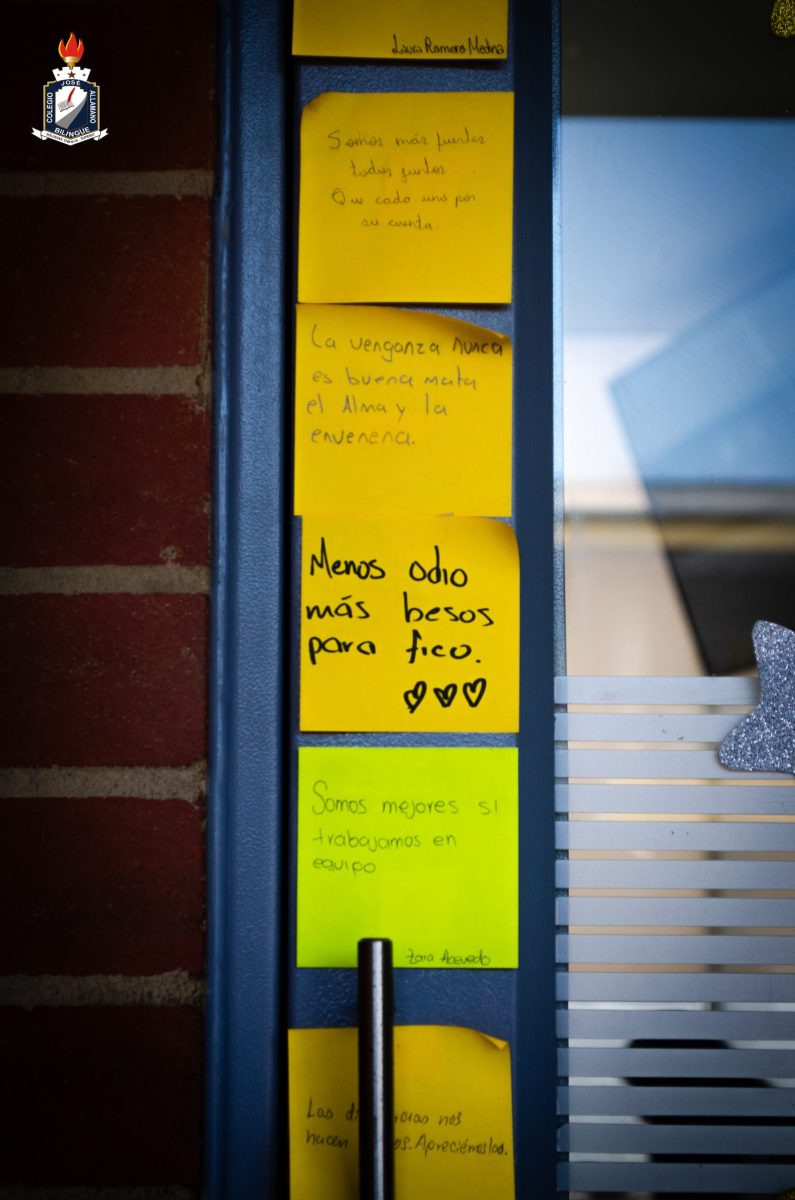 COLEGIO
JOSÉ
ALLAMANO
BILINGÜE
Laura Romero Medina
Somos más fuertes
todos juntos ...
Que cada uno por
su cuenta
La venganza nunca
es buena mata
el Alma y la
envenena.
Menos odio
más besos
para fico.
Somos mejores si
trabajamos en
equipo
Zara Acevedo
Las nos
hacen Apreciémoslas.